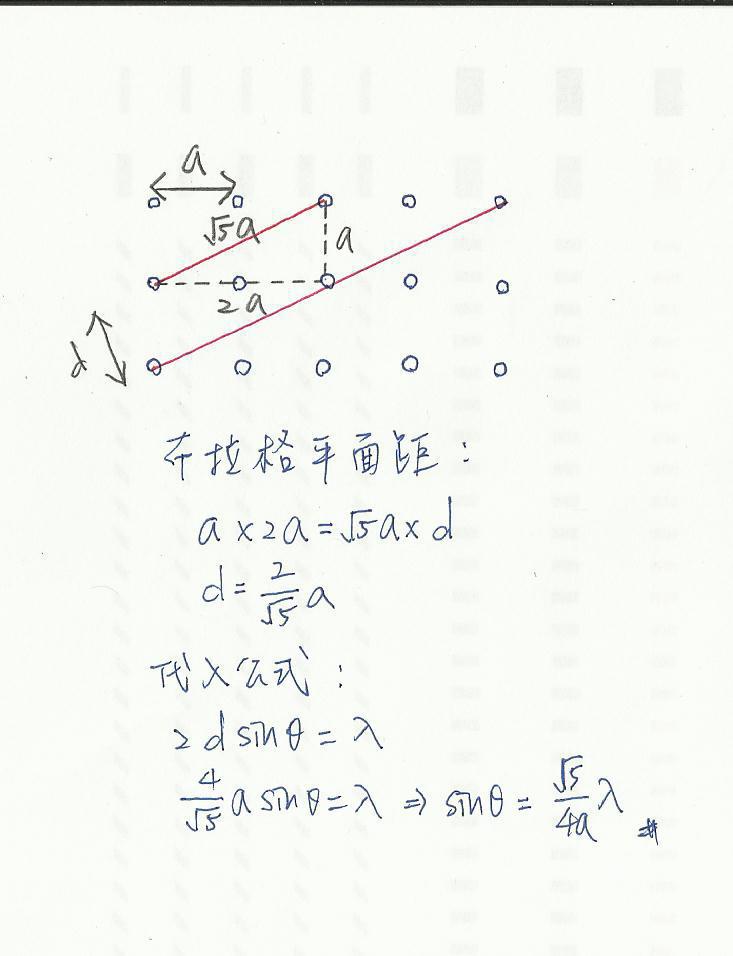 a
√5a
a
2a
d
布拉格平面距：
a × 2a = √5a × d
d = 2/√5 a
代入公式：
2 d sinθ = λ
4/√5 a sinθ = λ ⇒ sinθ = √5/4a λ #